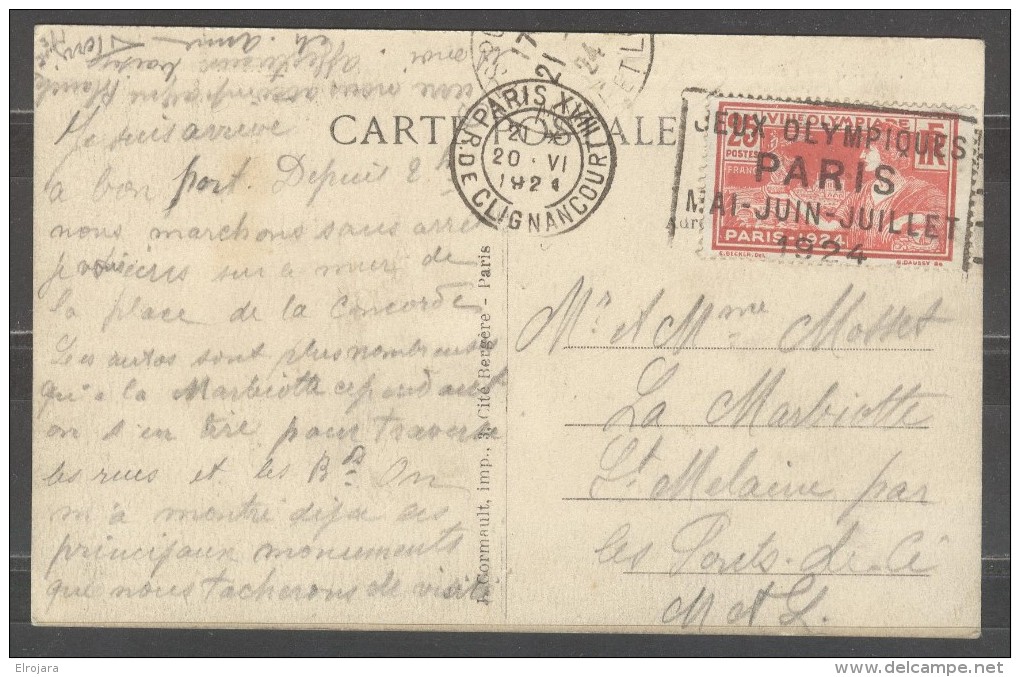 CARTE POSTALE
PARIS XVIII
R. DE CLIGNANCOURT
21
20 · VI
1924
17
21
24
JEUX OLYMPIQUES
PARIS
MAI-JUIN-JUILLET
1924
VIIIE OLYMPIADE
25
POSTES
FRANÇAISE
PARIS 1924
Je suis arrivé
à bon port. Depuis 2 h
nous marchons sans arrêt
je vous écris sur
la place de la Concorde
Les autos sont plus nombreuses
qu'à la Marbiotte cependant
on s'en tire pour traverser
les rues et les Bds. On
m'a montré déjà les
principaux monuments
que nous tacherons de visiter
J. Cormault, imp., 3, Cité Bergère - Paris
Mr et Mme Mosset
La Marbiotte
St Melaine par
les Ponts-de-Cé
M et L.
Elrojara
delcampe.net